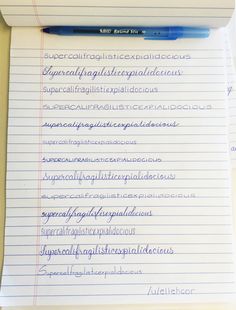 BIC Round Stic
supercalifragilisticexpialidocious
Supercalifragilisticexpialidocious
supercalifragilisticexpialidocious
SUPERCALIFRAGILISTICEXPIALIDOCIOUS
supercalifragilisticexpialidocious
supercalifragilisticexpialidocious
SUPERCALIFRAGILISTICEXPIALIDOCIOUS
supercalifragilisticexpialidocious
supercalifragilisticexpialidocious
supercalifragilisticexpialidocious
supercalifragilisticexpialidocious
Supercalifragilisticexpialidocious
Supercalifragilisticexpialidocious
/u/ellehcor